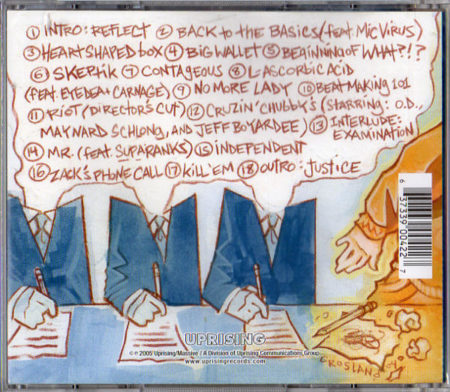 ① INTRO: REFLECT ② BACK TO THE BASICS (feat. MIC VIRUS)
③ HEART SHAPED BOX ④ BIG WALLET ⑤ BEGINNING OF WHAT?!?
⑥ SKEPTIK ⑦ CONTAGEOUS ⑧ L-ASCORBIC ACID
(feat. EYEDEA + CARNAGE) ⑨ NO MORE LADY ⑩ BEAT MAKING 101
⑪ RIOT (DIRECTOR'S CUT) ⑫ CRUZIN' CHUBBY'S (STARRING: O.D.,
MAYNARD SCHLONG, AND JEFF BOYARDEE) ⑬ INTERLUDE:
EXAMINATION
⑭ MR. (feat. SUPARANKS) ⑮ INDEPENDENT
⑯ ZACK'S PHONE CALL ⑰ KILL 'EM ⑱ OUTRO: JUSTICE
6 37339 00422 7
UPRISING
© ℗ 2005 Uprising/Massive / A Division of Uprising Communications Group.
www.uprisingrecords.com